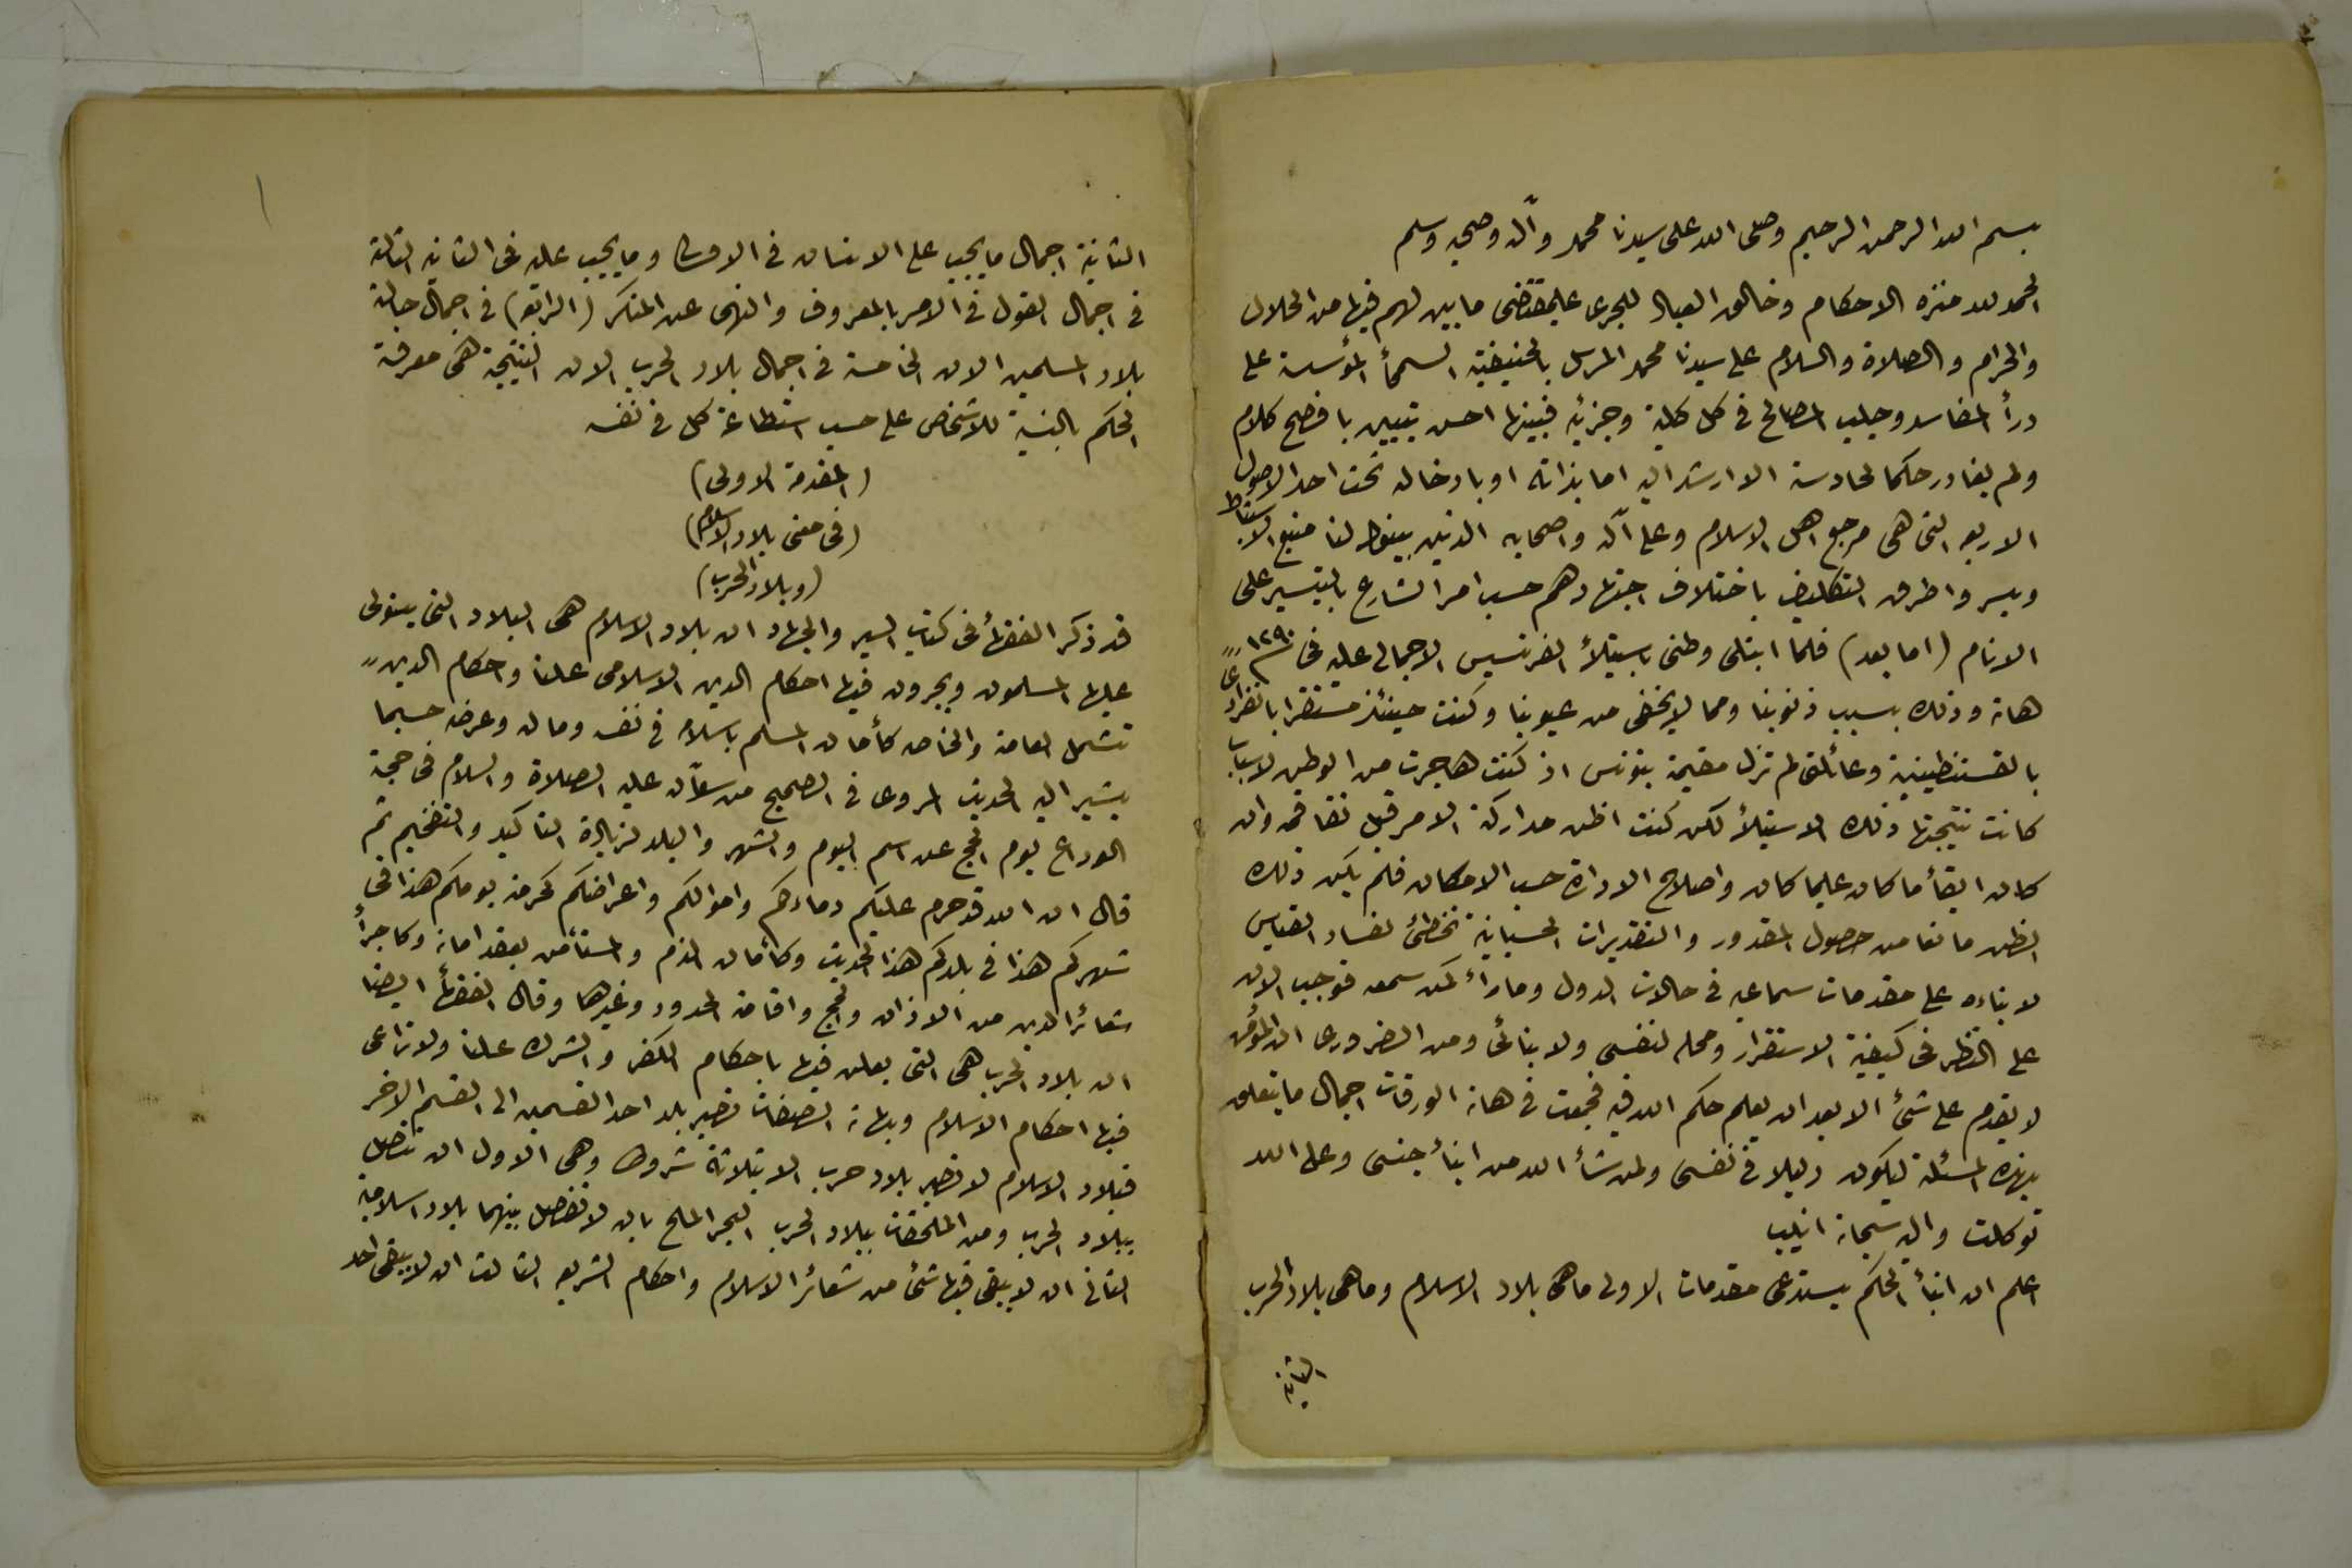 بسم الله الرحمن الرحيم وصلى الله على سيدنا محمد وآله وصحبه وسلم
الحمد لله منزه الاحكام وخالق العباد للجرى على مقتضى ما بين لهم فيها من الحلال
والحرام والصلاة والسلام على سيدنا محمد المرسل بالحنيفية السمحأ المؤسسة على
درأ المفاسد وجلب المصالح فى كل كلية وجزئيه فبينها احسن تبيين بافصح كلام
ولم يغادر حكما لحادسة الا ارشد اليه اما بذاته او بادخاله تحت احد الاصول
الاربع التى هى مرجع اهل الاسلام وعلى آله واصحابه الذين بينوا لنا منبع الاستنباط
ويسروا طرق التكليف باختلاف اجتهادهم حسب امر الشارع بالتيسير على
الانام (اما بعد) فلما ابتلى وطنى باستيلأ الفرنسيس الاجمالى عليه فى ١٢٩٠
هاته وذلك بسبب ذنوبنا ومما لا يخفى من عيوبنا وكنت حينئذ مستقرا بانفرادى
بالقسنطينية وعائلتى لم تزل مقيمة بتونس اذ كنت هاجرت من الوطن لاسباب
كانت نتيجتها ذلك الاستيلأ لكن كنت اظن مداركة الامر قبل تفاقمه وان
كان ابقأ ما كان عليما كان واصلاح الادارة حسب الامكان فلم يكن ذلك
الظن مانعا من حصول المقدور والتقديرات الحسبانية تخطئ لفساد القياس
لابتناءه على مقدمات سماعيه فى حالات الدول وما رأء كمن سمع فوجب الان
على النظر فى كيفية الاستقرار ومحله لنفسى ولابنائى ومن الضرورى ان المؤمن
لا يقدم على شئ الا بعد ان يعلم حكم الله فيه فجمعت فى هاته الورقات اجمال ما يتعلق
بهذه المسئلة ليكون دليلا فى نفسى ولمن شأ الله من ابنأ جنسى وعلى الله
توكلت واليه سبحانه انيب
اعلم ان ابنأ الحكم يستدعى مقدمات الاولى ما هى بلاد الاسلام وما هى بلاد الحرب
الثانية
الثانية اجمال ما يجب على الانسان فى الاولى وما يجب عليه فى الثانيه الثالثة
فى اجمال القول فى الامر بالمعروف والنهى عن المنكر (الرابعة) فى اجمال حالة
بلاد المسلمين الان الخامسة فى اجمال بلاد الحرب الان النتيجة هى معرفة
الحكم بالنسبة للاشخاص على حسب استطاعة كل فى نفسه
(المقدمة الاولى)
(فى معنى بلاد الاسلام)
(وبلاد الحرب)
قد ذكر الفقهأ فى كتاب السير والجهاد ان بلاد الاسلام هى البلاد التى يستولى
عليها المسلمون ويجرون فيها احكام الدين الاسلامى علنا واحكام الدين
تشمل العامة والخاصه كأمان المسلم باسلامه فى نفسه وماله وعرضه حسبما
يشير اليه الحديث المروى فى الصحيح من سؤاله عليه الصلاة والسلام فى حجة
الوداع يوم الحج عن اسم اليوم والشهر والبلد لزيادة التاكيد والتفخيم ثم
قال ان الله قد حرم عليكم دماءكم واموالكم واعراضكم كحرمة يومكم هذا فى
شهركم هذا فى بلدكم هذا الحديث وكأمان الذم والمستأمن بعقد امانه وكاجرأ
شعائر الدين من الاذان والحج واقامة الحدود وغيرهما وقال الفقهأ ايضا
ان بلاد الحرب هى التى يعلن فيها باحكام الكفر والشرك علنا ولا تراعى
فيها احكام الاسلام وبهاته الصفات تصير بلد احد القسمين الى القسم الاخر
فبلاد الاسلام لا تصير بلاد حرب الا بثلاثة شروط وهى الاول ان تتصل
ببلاد الحرب ومن الملحقات ببلاد الحرب البحر المالح بان لا تفصل بينهما بلاد اسلامية
الثانى ان لا يبقى فيها شئ من شعائر الاسلام واحكام الشريعه الثالث ان لا يبقى احد